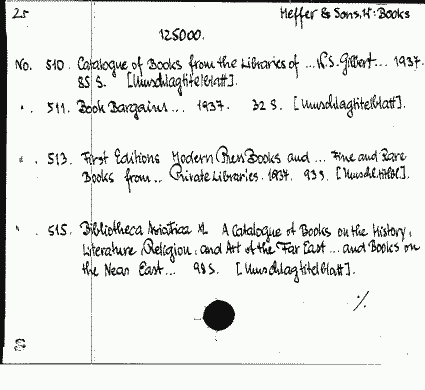 25 Heffer & Sons, W: Books
125000.
No. 510. Catalogue of Books from the Libraries of ... W.S. Gilbert ... 1937.
85 S. [Umschlagtitelblatt].
" . 511. Book Bargains ... 1937. 32 S. [Umschlagtitelblatt].
" . 513. First Editions Modern Press Books and ... Fine and Rare
Books from .. Private Libraries. 1937. 93 S. [Umschl.titelbl.].
" . 515. Bibliotheca Asiatica A Catalogue of Books on the History,
Literature, Religion, and Art of the Far East ... and Books on
the Near East ... 98 S. [Umschlagtitelblatt].